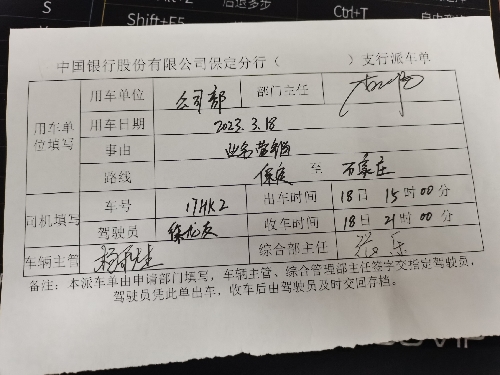 S
Shift+F5
后退多步
Ctrl+T
自由
中国银行股份有限公司保定分行（　　　　）支行派车单
用车单位填写 用车单位 公司部 部门主任
用车日期 2023.3.18
事由 业务营销
路线 保定 至 石家庄
司机填写 车号 17HK2 出车时间 18日 15时00分
驾驶员 收车时间 18日 21时00分
车辆主管 综合部主任
备注：本派车单由申请部门填写，车辆主管、综合管理部主任签字交指定驾驶员，
驾驶员凭此单出车，收车后由驾驶员及时交回存档。